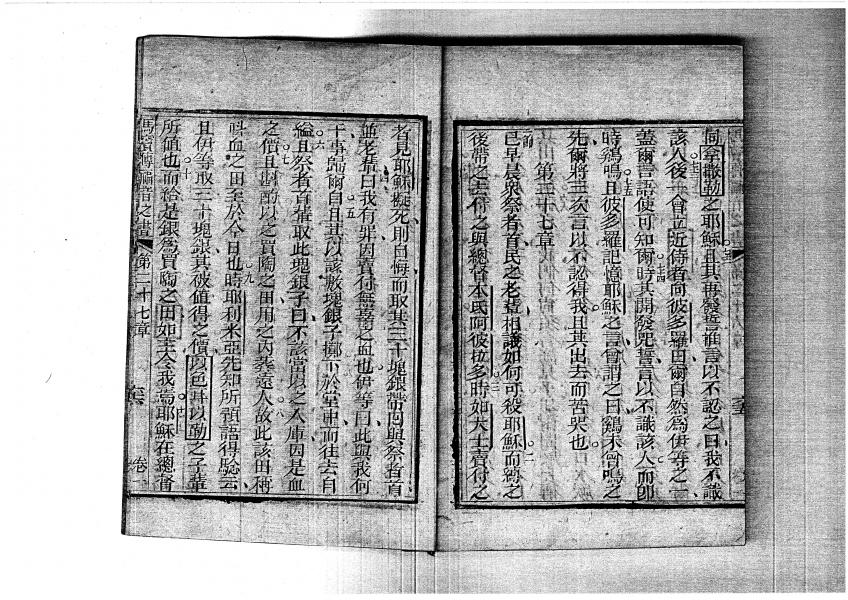 同拿撒勒之耶穌且其再發誓推言以不認之曰我不識
該人後一會立近侍者向彼多羅曰爾自然為伊等之一
蓋爾言語使可知爾時其開發咒誓言以不識該人而即
時鷄鳴且彼多羅記憶耶穌之言曾謂之曰鷄未曾鳴之
先爾將三次言以不認得我且其出去而苦哭也
第二十七章
已早晨眾祭者首民之老輩相議如何可殺耶穌而縛之
後帶之去付之與總督本氏阿彼拉多時如大士賣付之
者見耶穌擬死則自悔而取其三十塊銀帶回與祭者首
並老輩曰我有罪因賣付無辜之血也伊等曰此與我何
干事歸爾自且其以該數塊銀子擲下於堂中而往去自
縊且祭者首輩取此塊銀子曰不該當以之入庫因是血
之價且斟酌以之買陶之田用之內葬遠人故此該田稱
呌血之田至於今日也時耶利米亞先知所預語得驗云
且伊等取三十塊銀其被值得之價以色耳以勒之子輩
所值也而給是銀為買陶之田如主令我焉耶穌在總督
馬竇傳福音之書 第二十七章 卷一